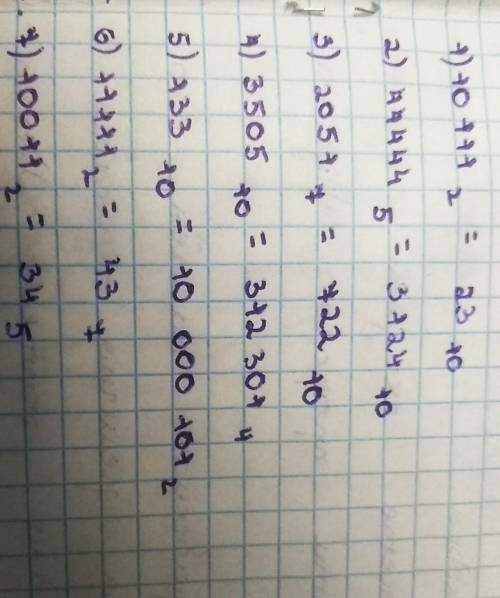 1) 10111₂ = 23₁₀
2) 44444₅ = 3124₁₀
3) 2051₇ = 722₁₀
4) 3505₁₀ = 312301₄
5) 133₁₀ = 10 000 101₂
6) 11111₂ = 43₇
7) 10011₂ = 34₅